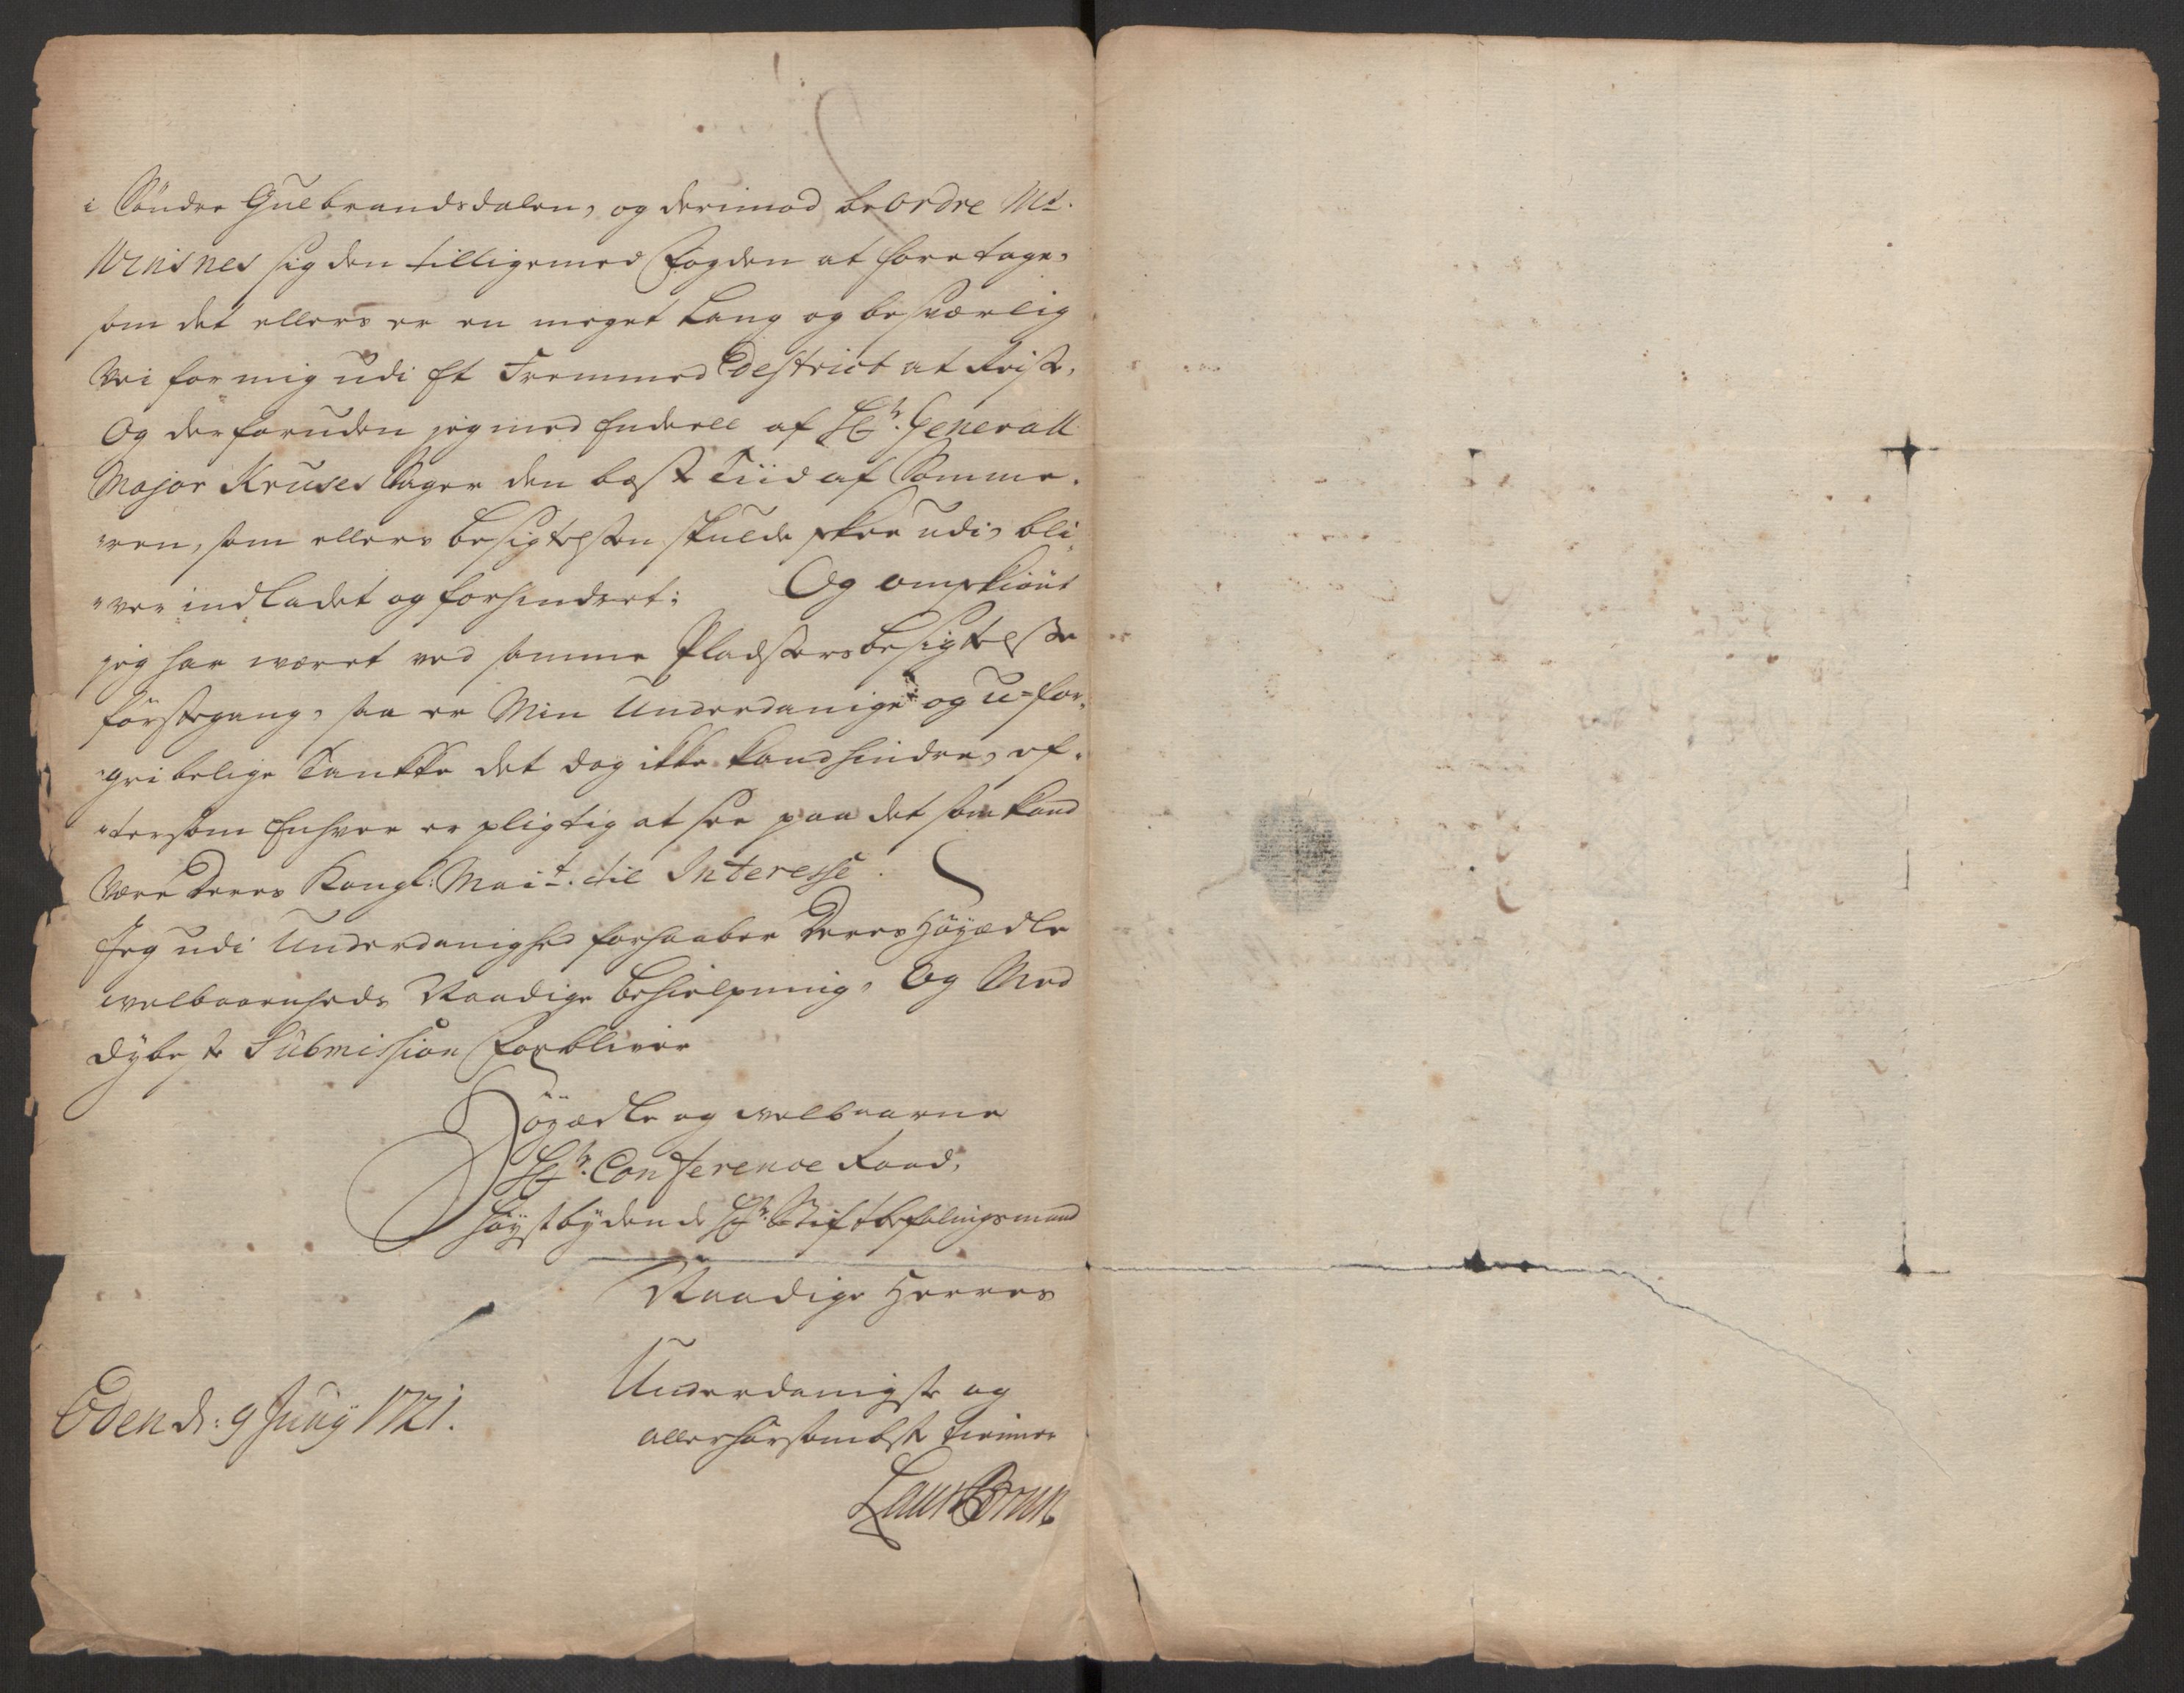 i Söndre Gulbrandsdalen, og derimod beordre Mr.
sig den tilligemed Fogden at foretage,
som det ellers er en meget Lang og besværlig
Vei for mig udi Et Fremmed District at Reise,
Og derforuden jeg med Endeel af Hr. Generall
Major Kruses Sager den beste Tiid af Somme-
"ren, som ellers besigtelsen skulde skee udi, bli
"ver indladet og forhindret: Og omskiönt
jeg har wæret ved samme Pladsers besigtelse
förstegang, saa er Min Underdanige og u=for-
"gribelige Tankke det dog ikke kand hindre, ef-
"tersom Enhver er pligtig at see paa det som kand
Være Deres Kongl: Mait. til Interesse.
Jeg udi Underdanighed forhaaber Deres Höyædle
welbaarenheds Naadige behielpning, Og Med
dybeste Submission Forbliver
Höyædle og welbaarne
Hr. Conference Raad,
höystbydende Hr. Stiftbefalingsmand
Naadige Herres
Underdanigste og
allerhörsombste tienner
Eden d: 9 Juny 1721.
Laur Brun